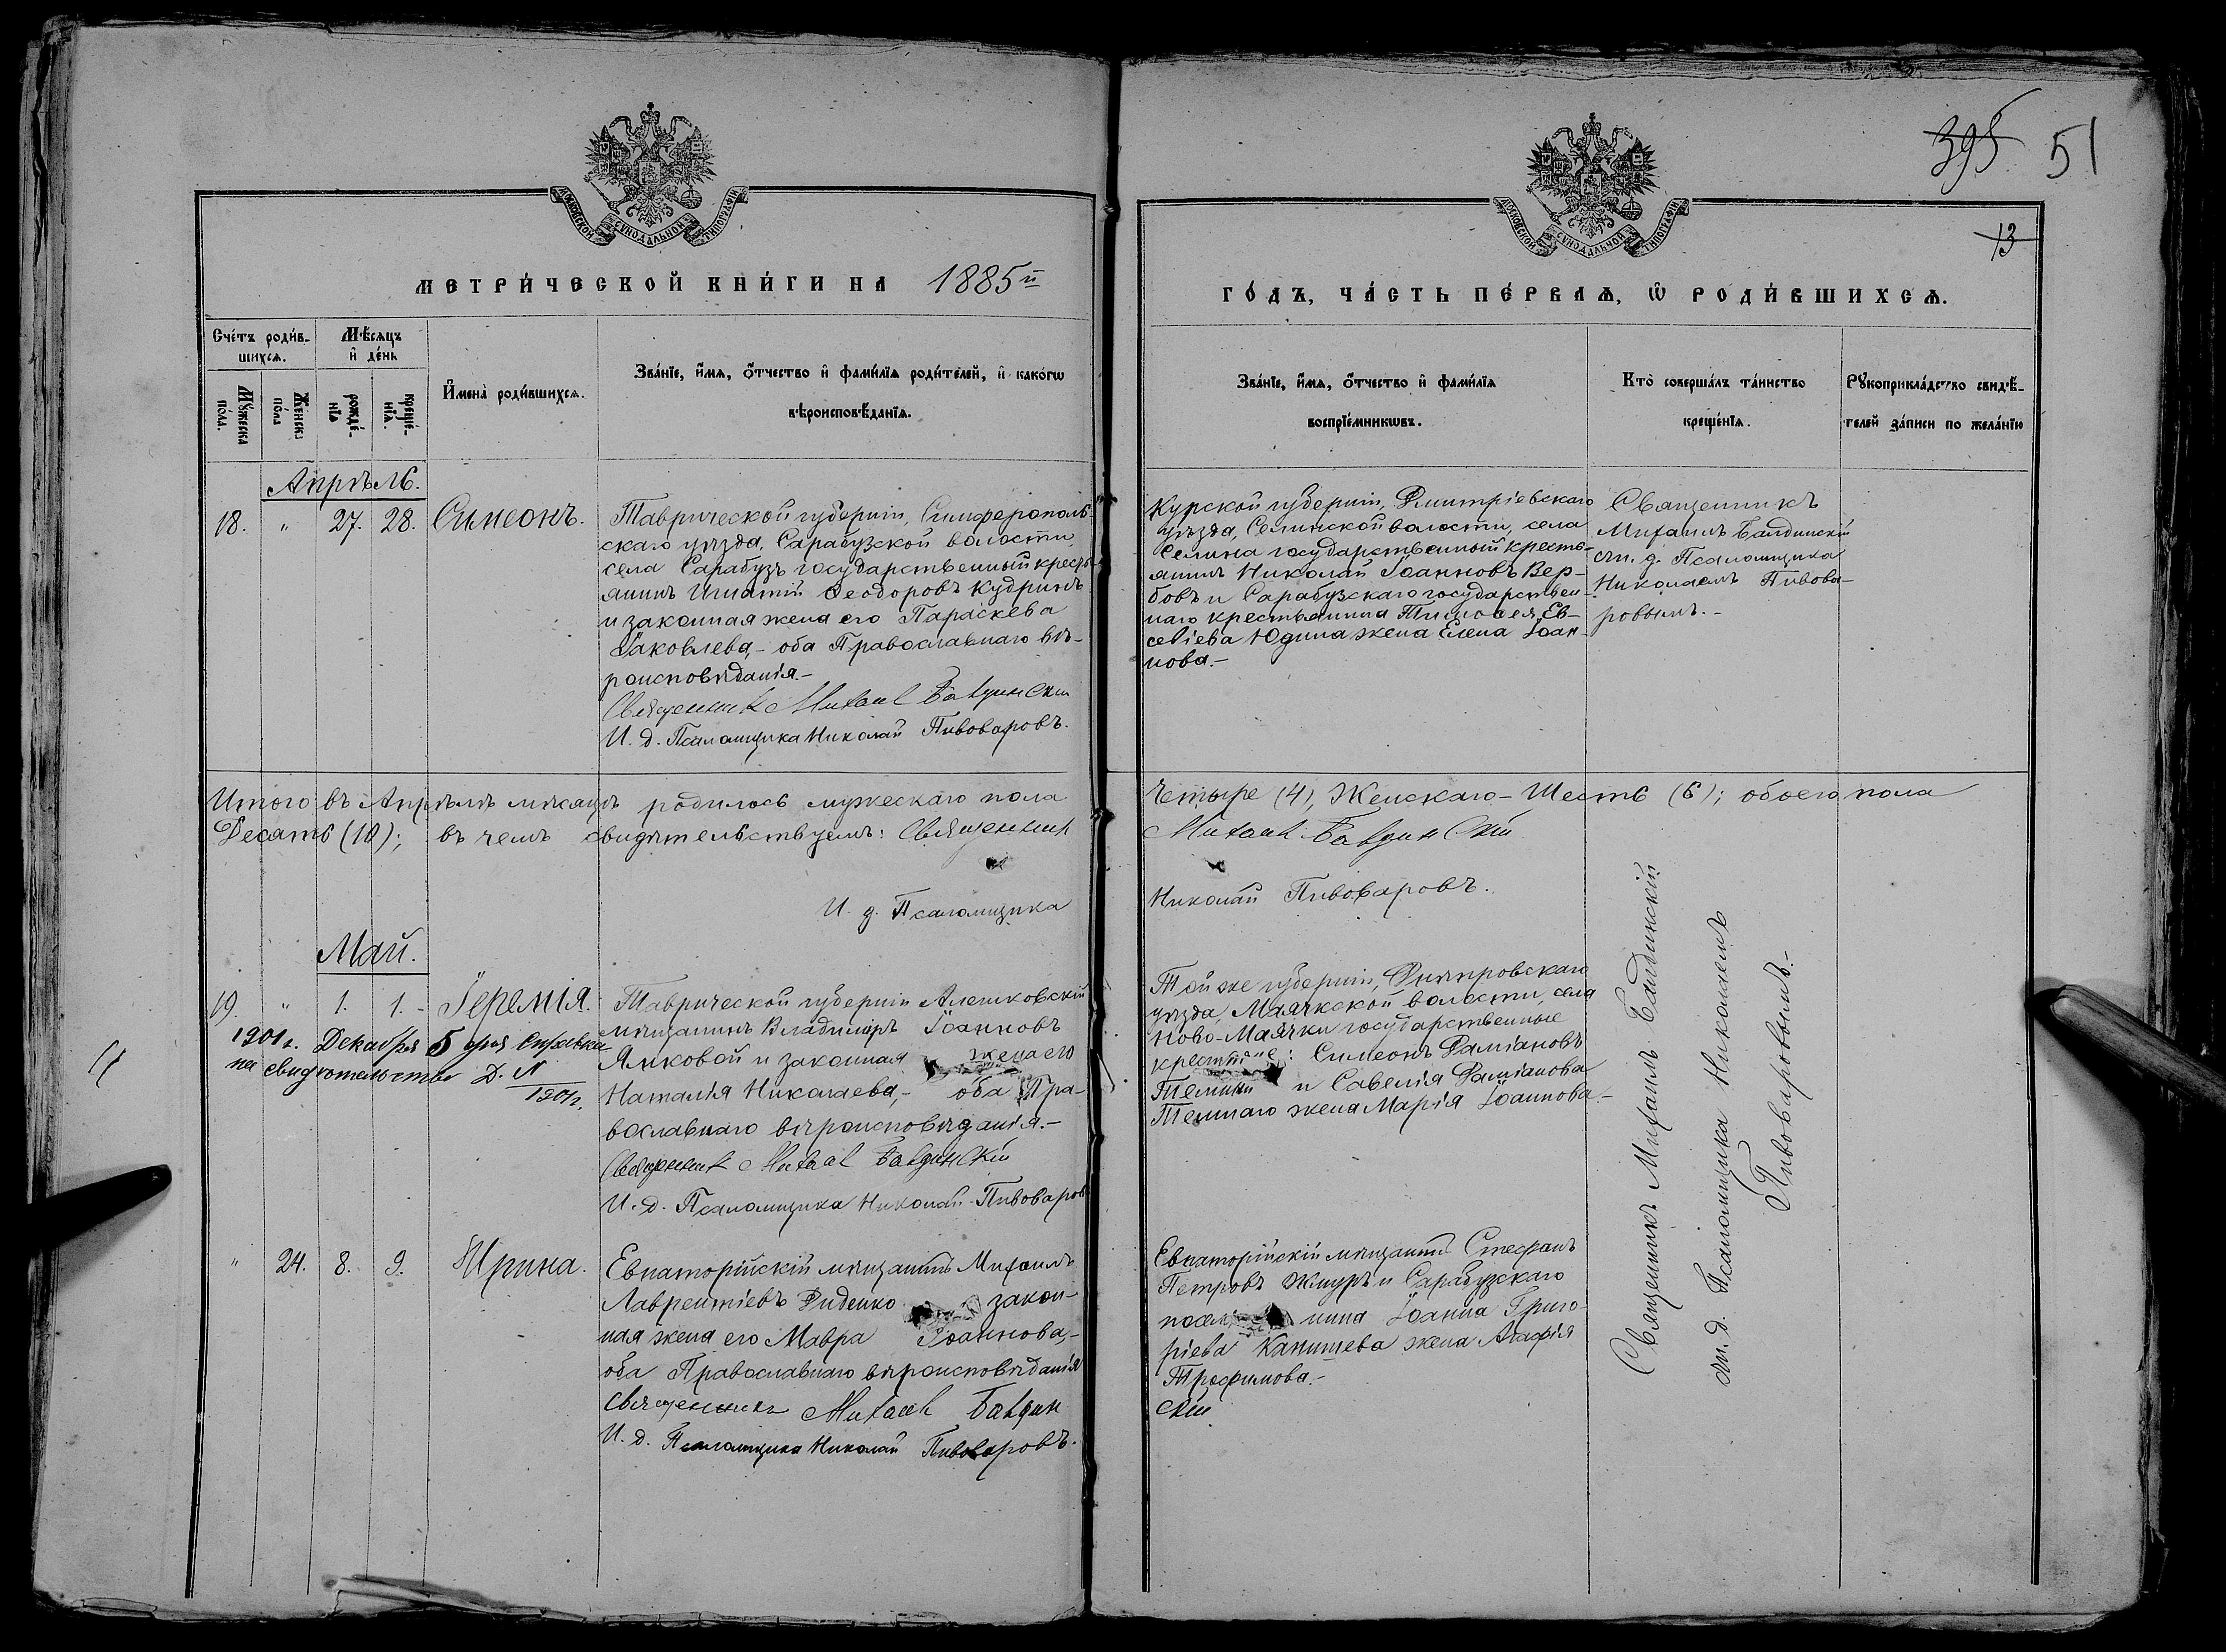 395 51
13
МОСКОВСКОЙ СѴНОДАЛЬНОЙ ТИПОГРАФІИ
МОСКОВСКОЙ СѴНОДАЛЬНОЙ ТИПОГРАФІИ
МЕТРИ́ЧЕСКОЙ КНИ́ГИ НА 1885й
ГО́ДЪ, ЧА́СТЬ ПЕ́РВАѦ, Ѽ РОДИ́ВШИХСѦ.
Сче́тъ роди́в-
шихсѧ.
Мѣ́сѧцъ
и҆ де́нь
Мꙋ́жеска
по́ла.
Же́нска
по́ла
рожде́-
нїѧ
креще́-
нїѧ.
И҆мена̀ роди́вшихсѧ.
Зва́нїе, и҆́мѧ, ѻ҆́тчество и҆ фами́лїѧ роди́телей, и҆ како́гѡ
вѣроисповѣ́данїѧ.
Зва́нїе, и҆́мѧ, ѻ҆́тчество и҆ фами́лїѧ
воспрїе́мникѡвъ.
Кто̀ соверша́лъ та́инство
креще́нїѧ.
Рꙋкоприкла́дство свидѣ́-
телей за́писи по жела́нїю
Апрѣль.
18. " 27. 28. Симеонъ.
Таврической губерніи, Симферополь-
скаго уѣзда, Сарабузской волости,
села Сарабузъ государственный кресть-
янинъ Игнатій Ѳеодоровъ Кудринъ
и законная жена его Параскева
Іаковлева,- оба Православнаго вѣ-
роисповѣданія.-
Священникъ Михаилъ Балдинскій
И. д. Псаломщика Николай Пивоваровъ.
Курской губерніи, Дмитріевскаго
уѣзда, Селинской волости, села
Селина государственный кресть-
янинъ Николай Іоанновъ Вер-
бовъ и Сарабузскаго государствен-
наго крестьянина Тимоѳея Ев-
севіева Юдина жена Елена Іоан-
нова.-
Священникъ
Михаилъ Балдинскій
съ и. д. Псаломщика
Николаемъ Пивова-
ровымъ.-
Итого въ Апрѣлѣ мѣсяцѣ родилось мужескаго пола Четыре (4), Женскаго - Шесть (6); обоего пола
Десать (10); въ чемъ свидѣтельствуемъ: Священникъ Михаилъ Балдинскій
И. д. Псаломщика Николай Пивоваровъ.
Май.
19. " 1. 1.- Іеремія.
1901 г. Декабря 5 дня справка
на свидѣтельство Д. №
1901 г.
Таврической губерніи Алешковскій
мѣщанинъ Владиміръ Іоанновъ
Янковой и законная жена его
Наталія Николаева,- оба Пра-
вославнаго вѣроисповѣданія.-
Священникъ Михаилъ Балдинскій
И. д. Псаломщика Николай Пивоваров
Той же губерніи, Днѣпровскаго
уѣзда, Маячкской волости, села
Ново-Маячки государственные
: Симеонъ Даміановъ
и Савелія Даміанова
Темнаго жена Марія Іоаннова.-
Священникъ Михаилъ Балдинскій
съ и. д. Псаломщика Николаемъ
Пивоваровымъ.-
" 24. 8. 9. Ирина.
Евпаторійскій мѣщанинъ Михаилъ
Лаврентіевъ Диденко закон-
ная жена его Мавра Іоаннова,-
оба Православнаго вѣроисповѣданія
Священникъ Михаилъ Балдин
И. д. Псаломщика Николай Пивоваровъ.
Евпаторійскій мѣщанинъ Стефанъ
Петровъ Жмуръ и Сарабузскаго
нина Іоанна Григо-
ріева Канищева жена Агафія
Трофимова.-
скій